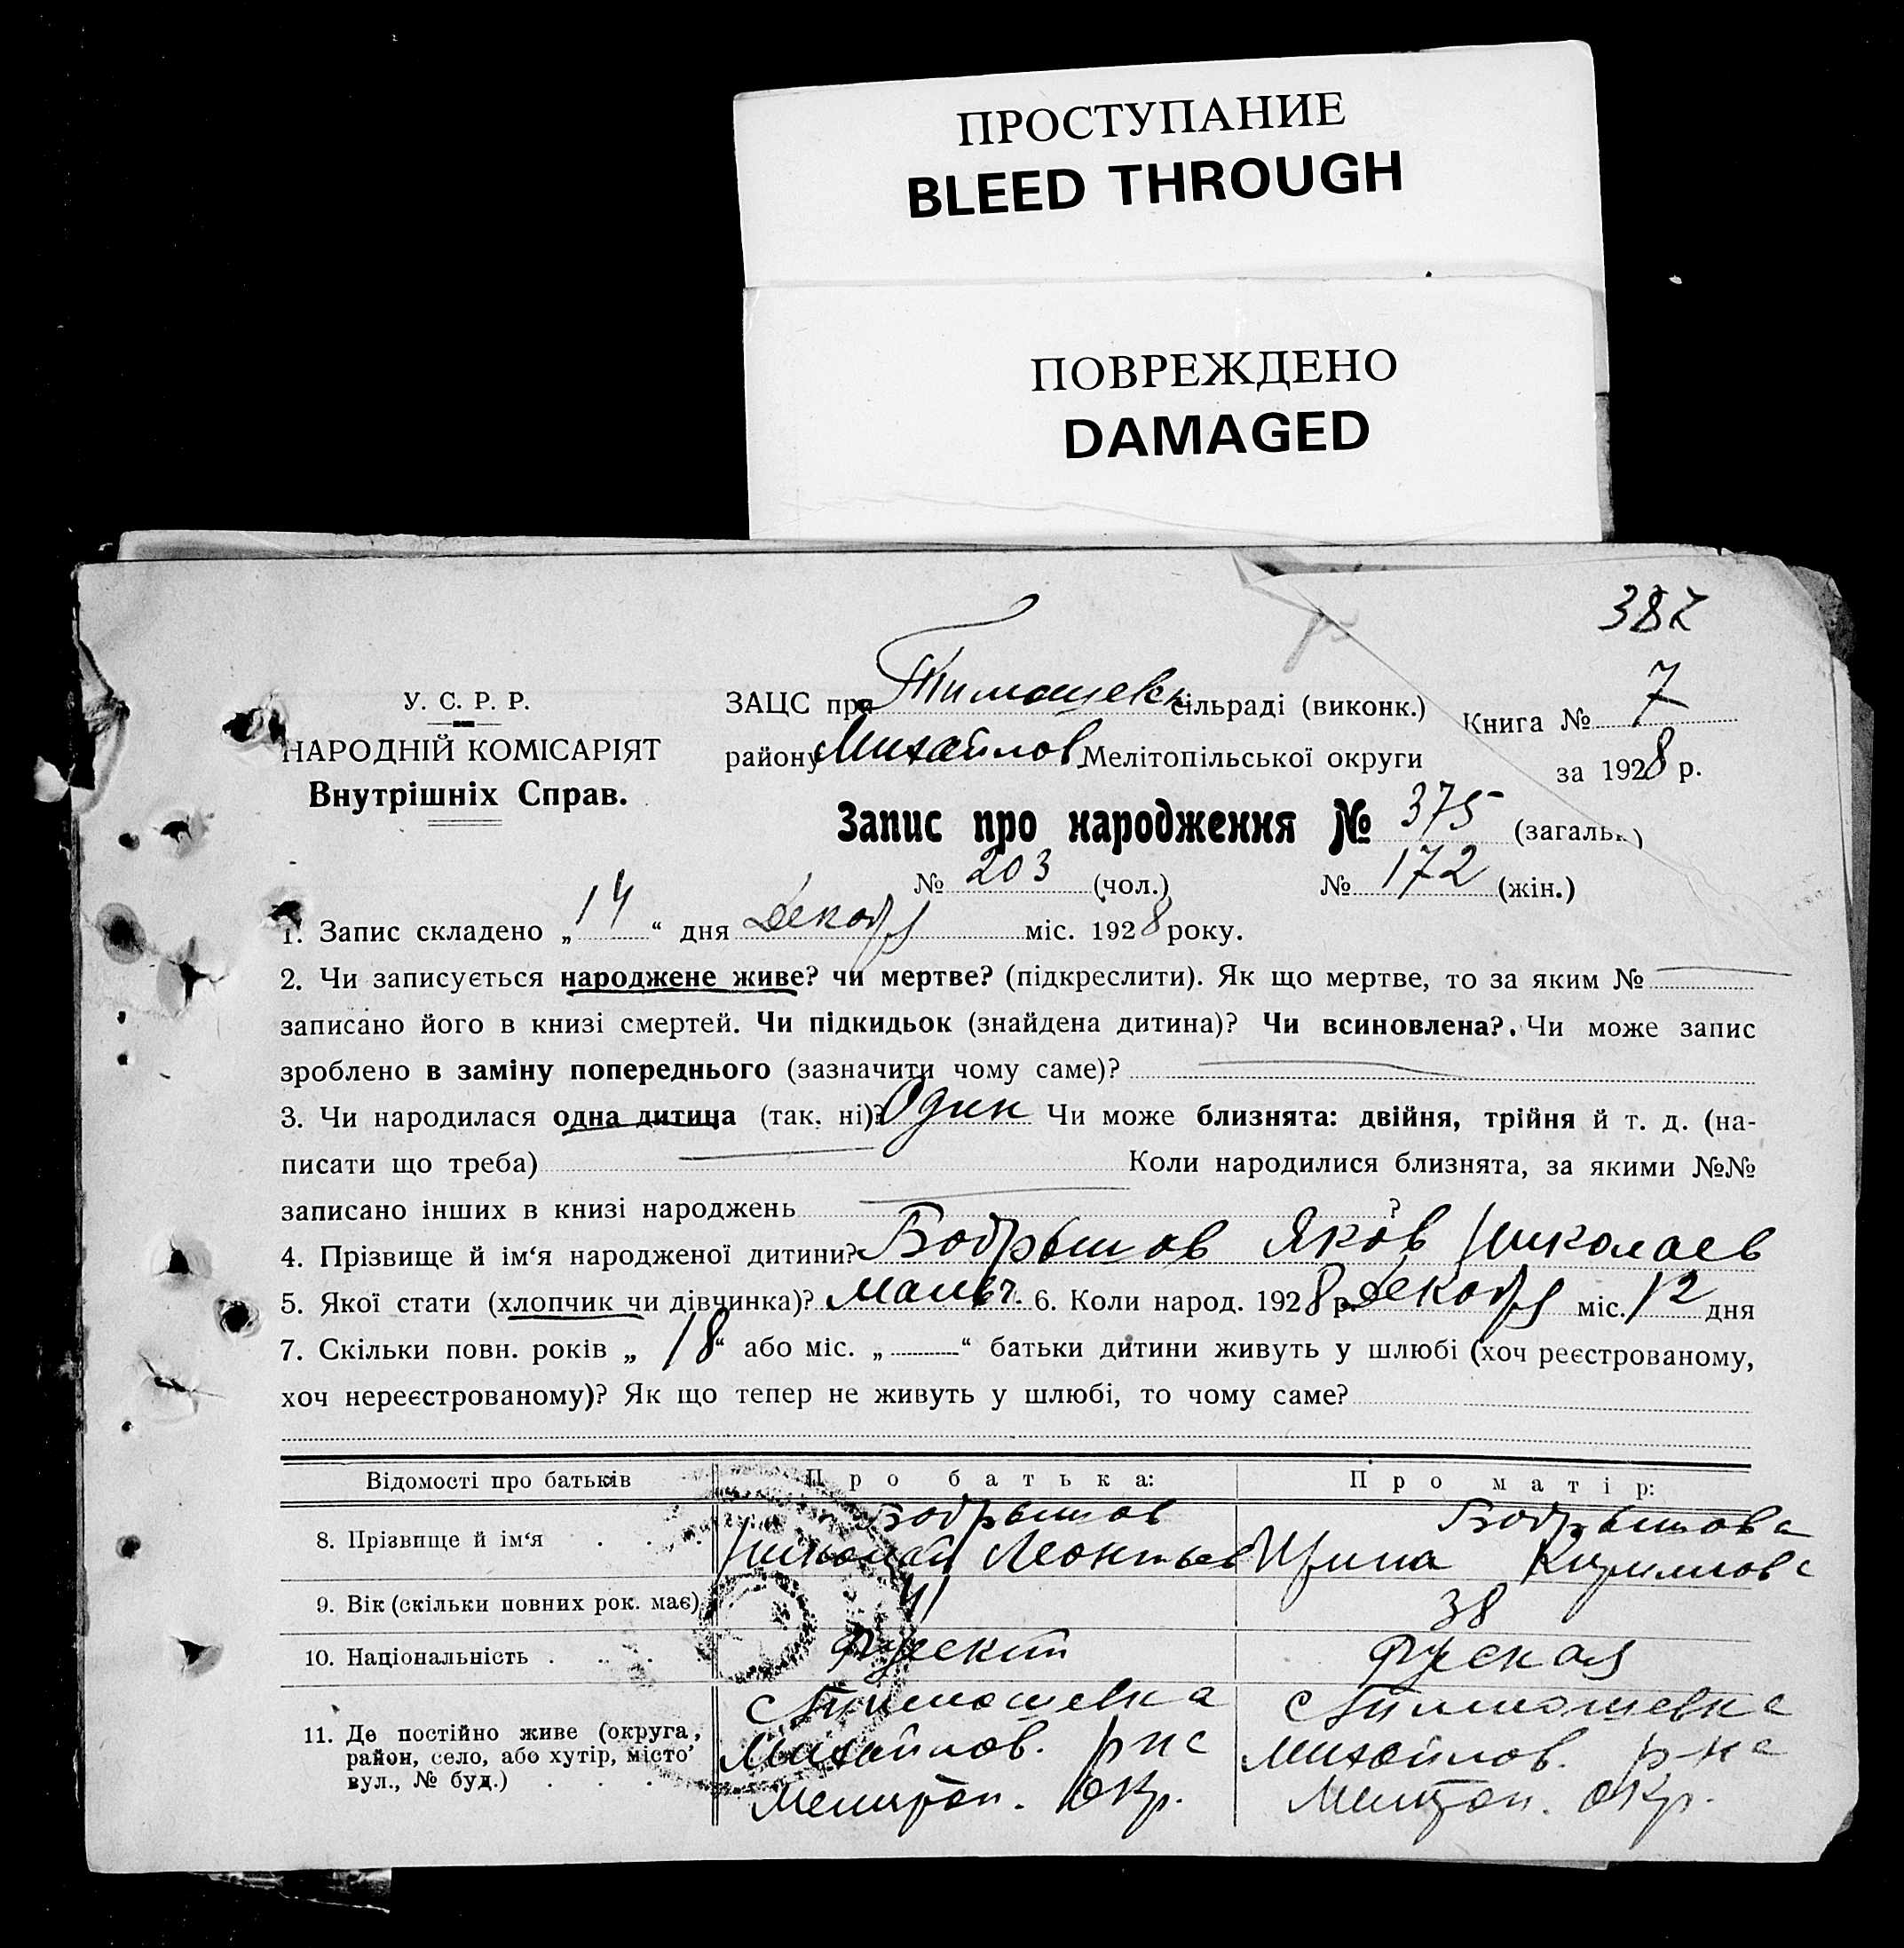 ПРОСТУПАНИЕ
BLEED THROUGH
ПОВРЕЖДЕНО
DAMAGED
382
У. С. Р. Р.
НАРОДНІЙ КОМІСАРІЯТ
Внутрішніх Справ.
ЗАЦС при Тимошевк сільраді (виконк.)
району Михайлов Мелітопільської округи
Книга № 7
за 1928 р.
Запис про народження № 375 (загальн.)
№ 203 (чол.) № 172 (жін.)
1. Запис складено „14“ дня Декабр міс. 1928 року.
2. Чи записується народжене живе? чи мертве? (підкреслити). Як що мертве, то за яким №
записано його в книзі смертей. Чи підкидьок (знайдена дитина)? Чи всиновлена?. Чи може запис
зроблено в заміну попереднього (зазначити чому саме)?
3. Чи народилася одна дитина (так, ні)? Один Чи може близнята: двійня, трійня й т. д. (на-
писати що треба) Коли народилися близнята, за якими №№
записано інших в книзі народжень ?
4. Прізвище й ім‘я народженої дитини? Бобрышов Яков Николаев
5. Якої стати (хлопчик чи дівчинка)? мальч. 6. Коли народ. 1928 р. Декабр міс. 12 дня
7. Скільки повн. років „18“ або міс. „ “ батьки дитини живуть у шлюбі (хоч реєстрованому,
хоч нереєстрованому)? Як що тепер не живуть у шлюбі, то чому саме?
Відомості про батьків Про батька: Про матір:
8. Прізвище й ім‘я Бобрышов Бобрышова
Николай Леонтьев Ирина Кирилова
9. Вік (скільки повних рок. має) 41 38
10. Національність Руский Руская
11. Де постійно живе (округа, район, село, або хутір, місто, вул., № буд.)
с Тимошевка с Тимошевка
Михайлов. рна Михайлов. р-на
Мелитоп. окр. Мелитоп. окр.